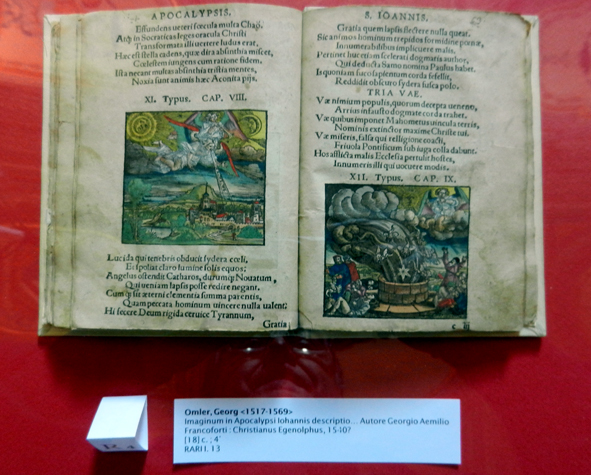 APOCALYPSIS.
Effundens ueteri fœcula multa Chao,
Atq; in Socraticas leges oracula Christi
Transformata illi uertere ludus erat,
Hæc est stella cadens, quæ dira absinthia miscet,
Cœlestem iungens cum ratione fidem.
Ista necant multas absinthia tristia mentes,
Noxia sunt animis hæc Aconita pijs.
XI. Typus. CAP. VIII.
Lucida qui tenebris obducit sydera cœli,
Et spoliat claro lumine solis equos:
Angelus ostendit Catharos, durumq; Nouatum,
Qui ueniam lapsis posse redire negant.
Cum q; sit æterni clementia summa parentis,
Quam peccata hominum uincere nulla ualent:
Hi fecere Deum rigida ceruice Tyrannum,
Gratia
S. IOANNIS.
62
Gratia quem lapsis flectere nulla queat.
Sic animos hominum trepidos formidine pœnæ,
Innumerabilibus implicuere malis.
Pertinet huc etiam scelerati dogmatis author,
Qui deducta Samo nomina Paulus habet.
Is quoniam suco sapientum corda fefellit,
Reddidit obscuro sydera fusca polo.
TRIA VAE.
Væ nimium populis, quorum decepta ueneno,
Arrius infausto dogmate corda trahet.
Væ quibus imponet Mahometus uincula terris,
Nominis extinctor maxime Christe tui.
Væ miseris, falsa qui relligione coacti,
Friuola Pontificum sub iuga colla dabunt.
Hos afflicta malis Ecclesia pertulit hostes,
Innumeris illi qui uocuere modis.
XII. Typus. CAP. IX.
c iij
Omler, Georg <1517-1569>
Imaginum in Apocalypsi Iohannis descriptio... Autore Georgio Aemilio
Francoforti : Christianus Egenolphus, 15-10?
[18] c. ; 4°
RARI I. 13